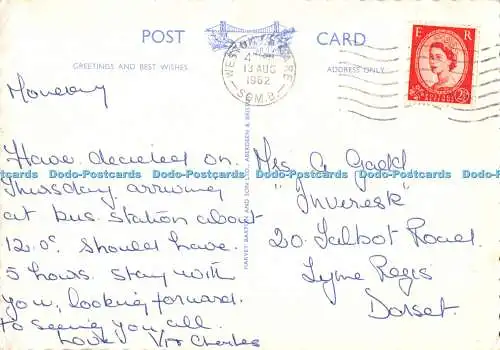 POST CARD
GREETINGS AND BEST WISHES
ADDRESS ONLY
WESTON-S-MARE
13 AUG
1962
SOM.
E R
2½D
Monday
Have decided on
Thursday arriving
at bus station about
12.0c. Should have
5 hours stay with
you, looking forward
to seeing you all.
Love, Vi & Charles
HARVEY BARTON AND SON LTD., ABERDEEN & BRISTOL
Mrs G Gadd
"Inveresk"
20 Talbot Road
Lyme Regis
Dorset.
Dodo-Postcards Dodo-Postcards Dodo-Postcards Dodo-Postcards
Dodo-Postcards Dodo-Postcards Dodo-Postcards Dodo-Postcards